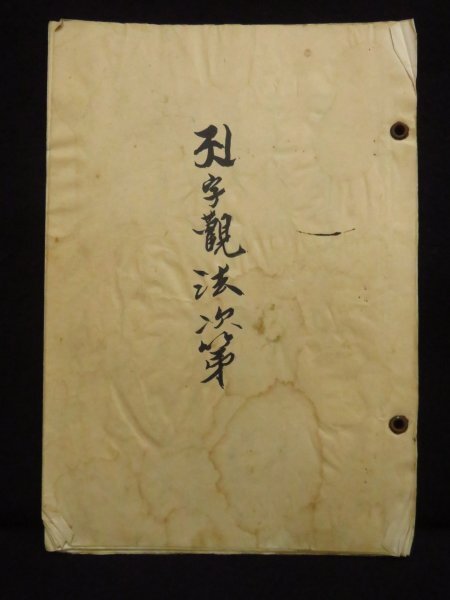 𑖀字觀法次第